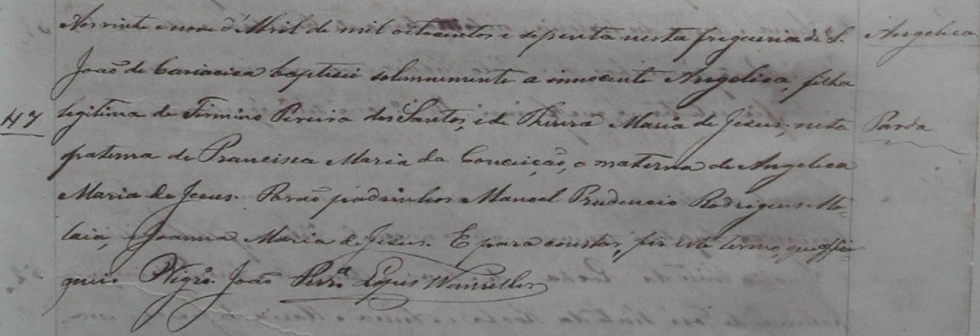 Aos vinte e nove d'Abril de mil oitocentos e setenta nesta freguesia de S.
Angelica
João de Cariacica baptisei solemnemente a innocente Angelica, filha
117
legitima de Firmino Pereira dos Santos, e de Thereza Maria de Jesus, neta
Parda
paterna de Francisca Maria da Conceição, e materna de Angelica
Maria de Jesus. Forão padrinhos Manoel Prudencio Rodrigues
Joanna Maria de Jesus. E para constar, fiz este termo, que
Vigrº. João Ferrª. Lopes Wanzeller